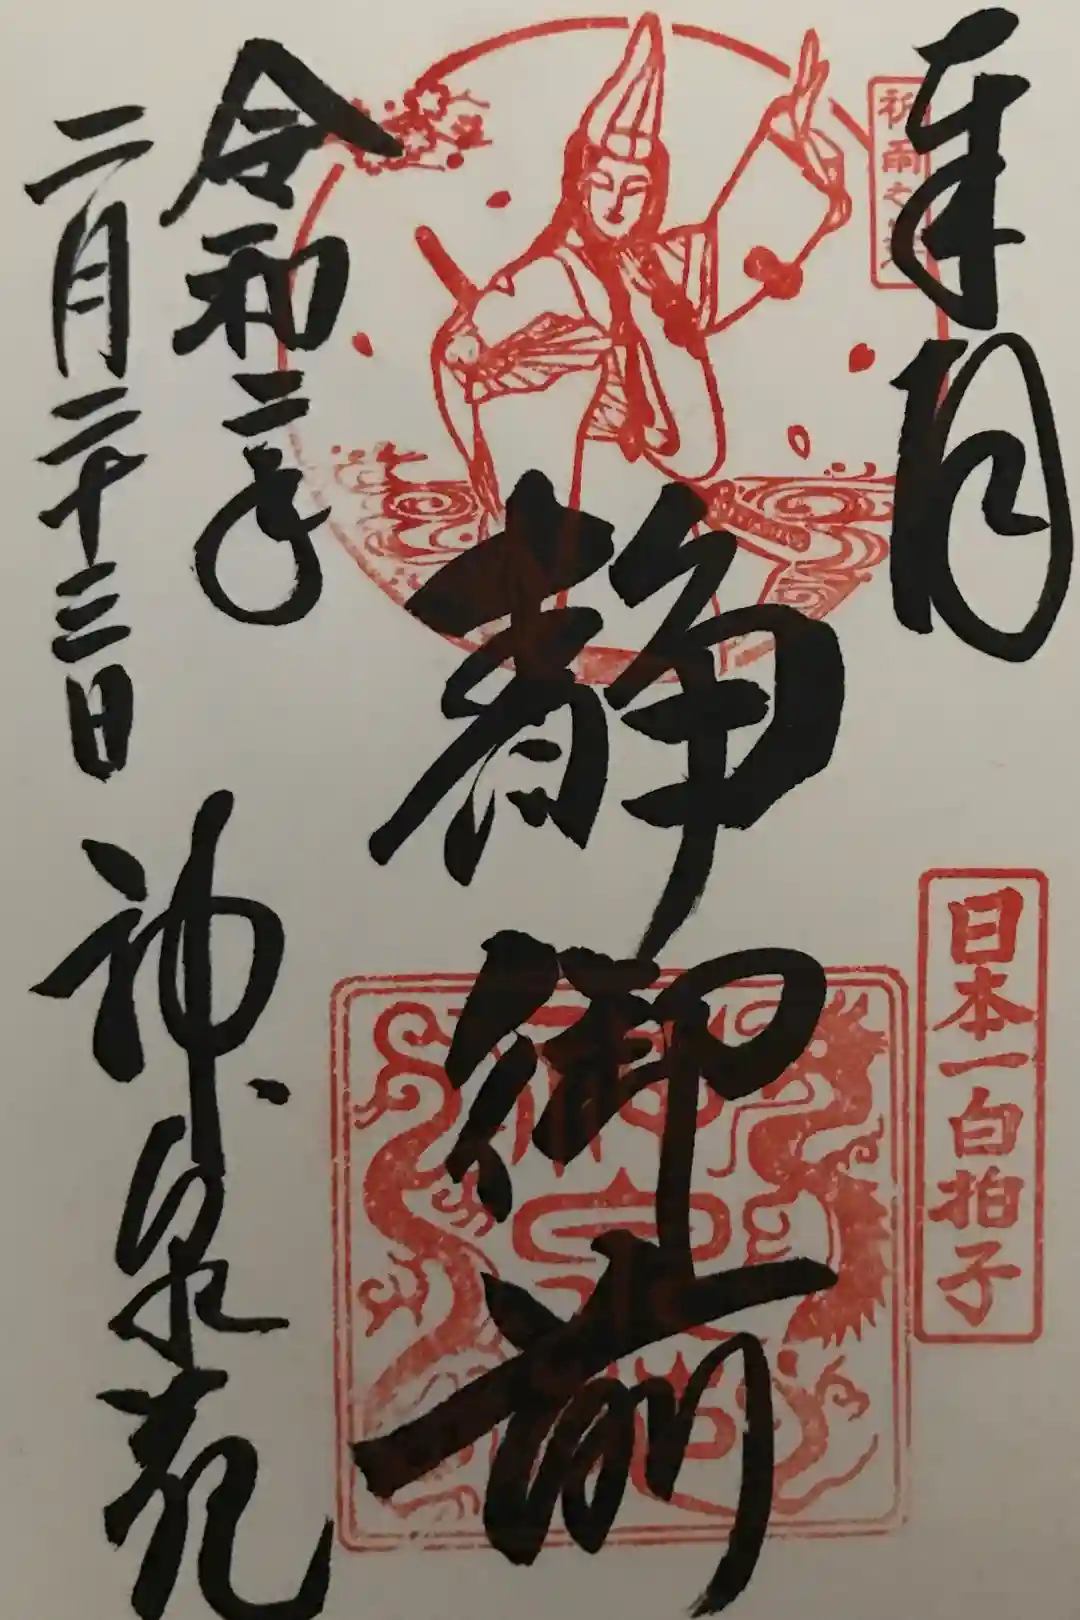 奉拝
祈雨之舞
日本一白拍子
静御前
令和二年
二月二十三日
神泉苑